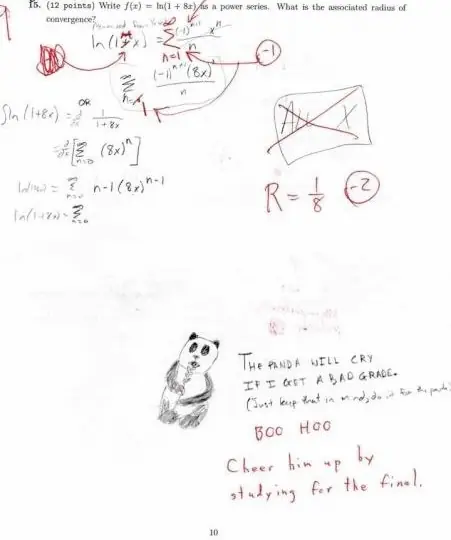 9
15. (12 points) Write f(x) = ln(1 + 8x) as a power series. What is the associated radius of
convergence?
ln(1+x) = ∞ Σ n=1 (-1)^{n+1} x^n / n
-1
Σ n=1 (-1)^{n+1} (8x) / n
OR
ln(1+8x) = 1/(1+8x)
All X
= d/dx [Σ n=0 (8x)^n]
R = 1/8 -2
= Σ n-1(8x)^{n-1}
ln(1+8x) = Σ n=0
THE PANDA WILL CRY
IF I GET A BAD GRADE.
(Just keep that in mind, do it for the panda)
BOO HOO
Cheer him up by
studying for the final.
10